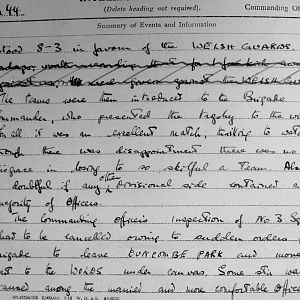 (Delete heading not required).
Commanding Of
44.
Summary of Events and Information
stood 8-3 in favour of the WELSH GUARDS.
given against the WELSH GU
The teams were then introduced to the Brigade
ommander, who presented the trophy to the wi
r all it was an excellent match, thrilling to watc
ough there was disappointment there was no
isgrace in losing to so skilful a Team. Also
doubtful if any other divisional side contained
ajority of Officers.
The Commanding Officer's inspection of No 3 Sq
had to be cancelled owing to sudden orders
igade to leave DUNCOMBE PARK and move
st to the WOLDS under canvas. Some stir we
aused among the married and more comfortable Officers